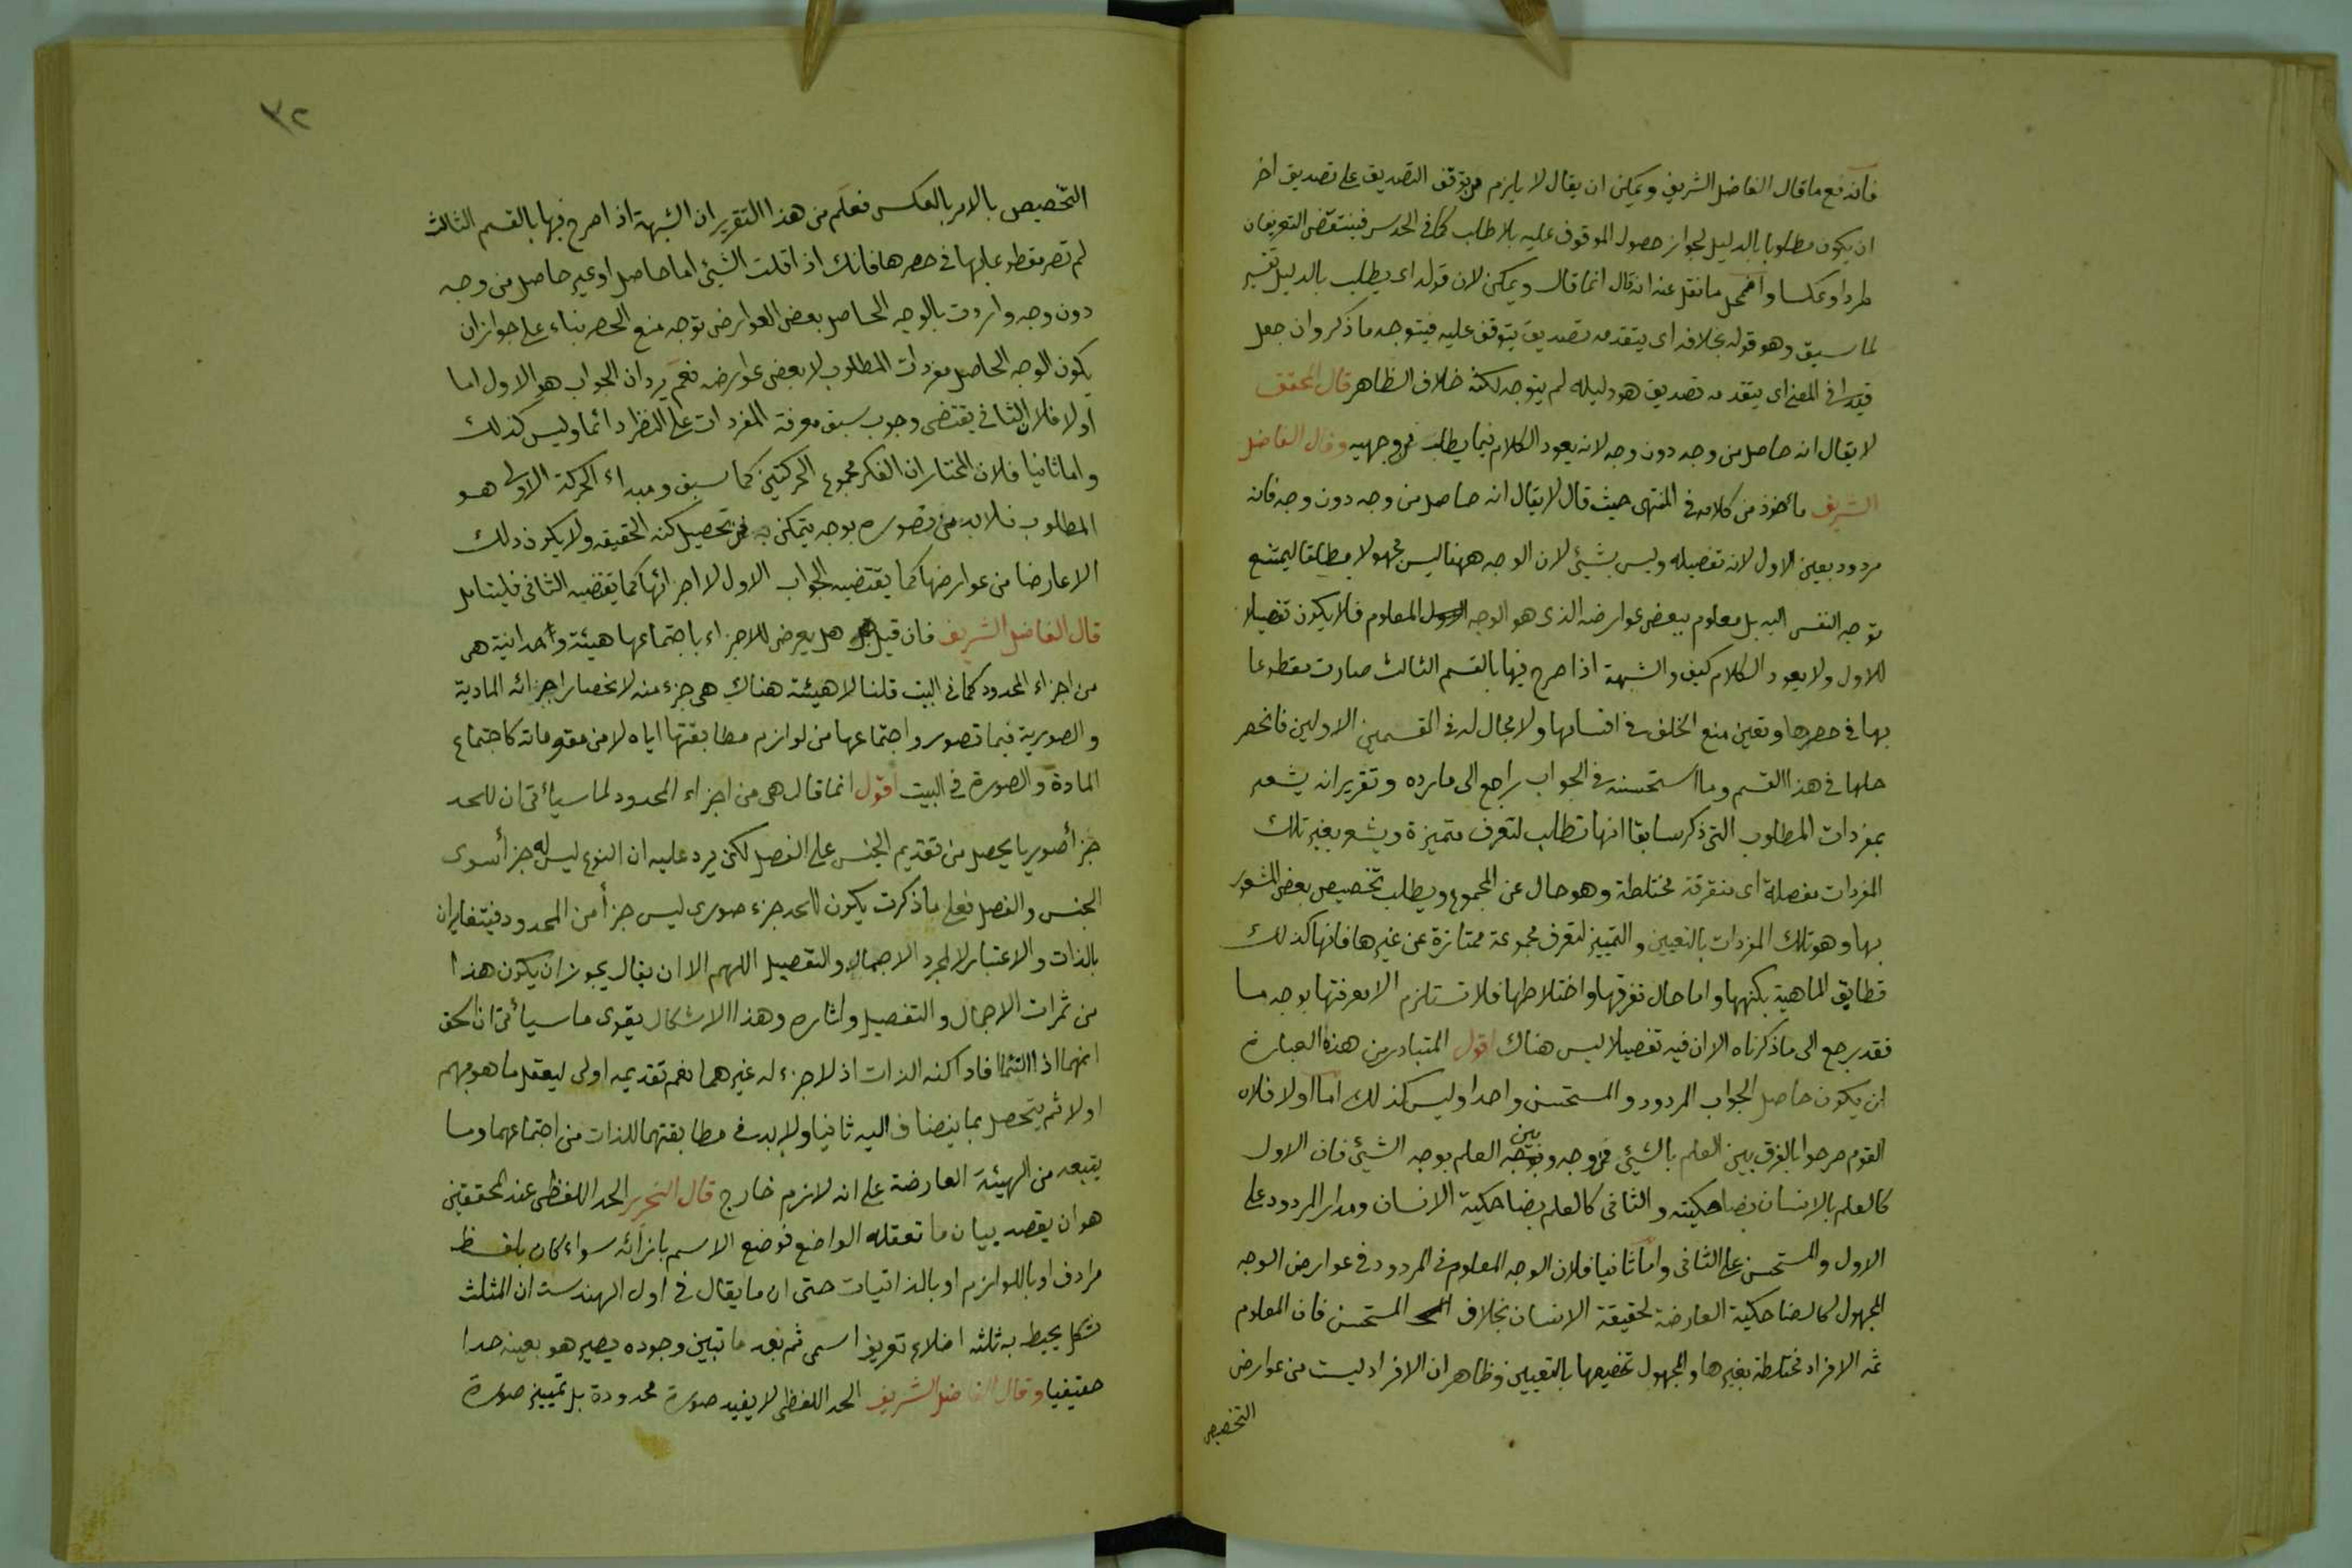 فاندفع ما قال الفاضل الشريف ويمكن ان يقال لا يلزم من توقف التصديق على تصديق اخر
ان يكون مطلوبا بالدليل لجواز حصول الموقوف عليه بلا طلب كما في الحدس فينتقض التعريفان
طردا وعكسا واضمحل ما نقل عنه انه قال انما قال ويمكن لان قوله اى يطلب بالدليل تفسير
لما سبق وهو قوله بخلافه اى يتقدمه تصديق يتوقف عليه فيتوجه ما ذكر وان جعل
قيدا في المعنى اى يتقدمه تصديق هو دليله لم يتوجه لكنه خلاف الظاهر قال المحقق
لا يقال انه حاصل من وجه دون وجه لانه يعود الكلام فيما يطلب من وجهيه وقال الفاضل
الشريف مأخوذ من كلامه في المنتهى حيث قال لا يقال انه حاصل من وجه دون وجه فانه
مردود بعين الاول لانه تفصيله وليس بشيئ لان الوجه ههنا ليس مجهولا مطلقا ليمتنع
توجه النفس اليه بل معلوم ببعض عوارضه الذى هو الوجه المعلوم فلا يكون تفصيلا
للاول ولا يعود الكلام كيف والشبهة اذا صرح فيها بالقسم الثالث صارت مقطوعا
بها في حصرها وتعين منع الخلف في اقسامها ولا مجال له في القسمين الاولين فانحصر
حلها في هذا القسم وما استحسنه في الجواب راجع الى ما رده وتقريره انه يشعر
بمفردات المطلوب التى ذكر سابقا انها تطلب لتعرف متميزة ويشعر بغير تلك
المفردات مفصلة اى متفرقة مختلطة وهو حال عن المجموع ويطلب تخصيص بعض المشعور
بها وهو تلك المفردات بالتعيين والتمييز لتعرف مجموعة ممتازة عن غيرها فانها كذلك
تطابق الماهية بكنهها واما حال تفرقها واختلاطها فلا تستلزم الا معرفتها بوجه ما
فقد رجع الى ما ذكرناه الا ان فيه تفصيلا ليس هناك اقول المتبادر من هذه العبارة
ان يكون حاصل الجواب المردود والمستحسن واحدا وليس كذلك اما اولا فلان
القوم صرحوا بالفرق بين العلم بالشيئ من وجه وبين العلم بوجه الشيئ فان الاول
كالعلم بالانسان بضاحكيته والثانى كالعلم بضاحكية الانسان ومدار المردود على
الاول والمستحسن على الثانى واما ثانيا فلان الوجه المعلوم في المردود في عوارض الوجه
المجهول كالضاحكية العارضة لحقيقة الانسان بخلاف المستحسن فان المعلوم
ثمه الافراد مختلطة بغيرها والمجهول تخصيصها بالتعيين وظاهر ان الافراد ليست من عوارض
التخصيص
٣٢
التخصيص بالامر بالعكس فعلم من هذا التقرير ان الشبهة اذا صرح فيها بالقسم الثالث
لم تصر مقطوعا بها في حصرها فانك اذا قلت الشيئ اما حاصل او غير حاصل من وجه
دون وجه واردت بالوجه الحاصل بعض العوارض توجه منع الحصر بناء على جواز ان
يكون الوجه الحاصل مفردات المطلوب لا بعض عوارضه نعم يرد ان الجواب هو الاول اما
اولا فلان الثانى يقتضى وجوب سبق معرفة المفردات على النظر دائما وليس كذلك
واما ثانيا فلان المختار ان الفكر مجموع الحركتين كما سبق ومبداء الحركة الاولى هو
المطلوب فلا بد من تصوره بوجه يتمكن به من تحصيل كنه الحقيقه ولا يكون ذلك
الا عارضا من عوارضها كما يقتضيه الجواب الاول لا اجزائها كما يقتضيه الثانى فليتامل
قال الفاضل الشريف فان قيل هل يعرض للاجزاء باجتماعها هيئة وحدانية هى
من اجزاء المحدود كما في البيت قلنا لا هيئة هناك هى جزء منه لانحصار اجزائه المادية
والصورية فيما تصور واجتماعها من لوازم مطابقتها اياه لا من مقوماته كاجتماع
المادة والصورة في البيت اقول انما قال هى من اجزاء المحدود لما سيأتى ان للحد
جزأ صوريا يحصل من تقديم الجنس على الفصل لكن يرد عليه ان النوع ليس له جزأ سوى
الجنس والفصل فعلى ما ذكرت يكون للحد جزء صورى ليس جزأ من المحدود فيتغايران
بالذات والاعتبار لا لمجرد الاجمال والتفصيل اللهم الا ان يقال يجوز ان يكون هذا
من ثمرات الاجمال والتفصيل واثاره وهذا الاشكال يقوى ما سيأتى ان الحق
انهما اذا التئما فادا كنه الذات اذ لا جزء له غيرهما نعم تقديمه اولى ليعقل ما هو مبهم
اولا ثم يتحصل بما ينضاف اليه ثانيا ولا بد في مطابقتهما للذات من اجتماعهما وما
يتبعه من الهيئة العارضة على انه لازم خارج قال النحرير الحد اللفظى عند المحققين
هو ان يقصد بيان ما تعقله الواضع فوضع الاسم بازائه سواء كان بلفظ
مرادف او باللوازم او بالذاتيات حتى ان ما يقال في اول الهندسة ان المثلث
شكل يحيط به ثلثه اضلاع تعريف اسمى ثم بعد ما تبين وجوده يصير هو بعينه حدا
حقيقيا وقال الفاضل الشريف الحد اللفظى لا يفيد صورة محدودة بل تمييز صورة